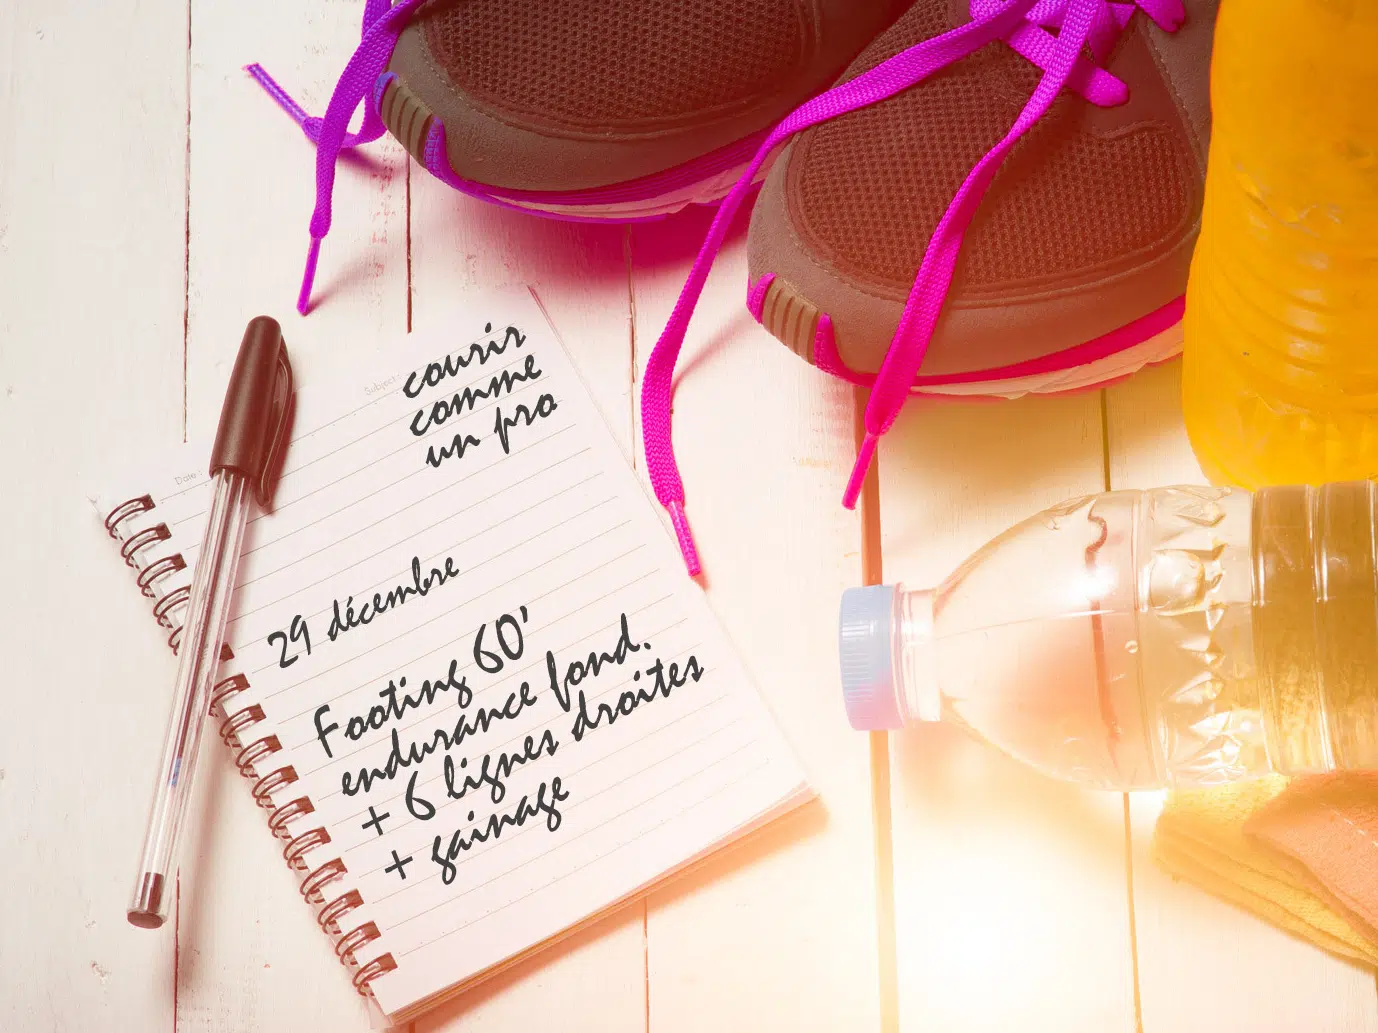 Subject:
courir
comme
un pro
Date:
29 décembre
Footing 60'
endurance fond.
+ 6 lignes droites
+ gainage